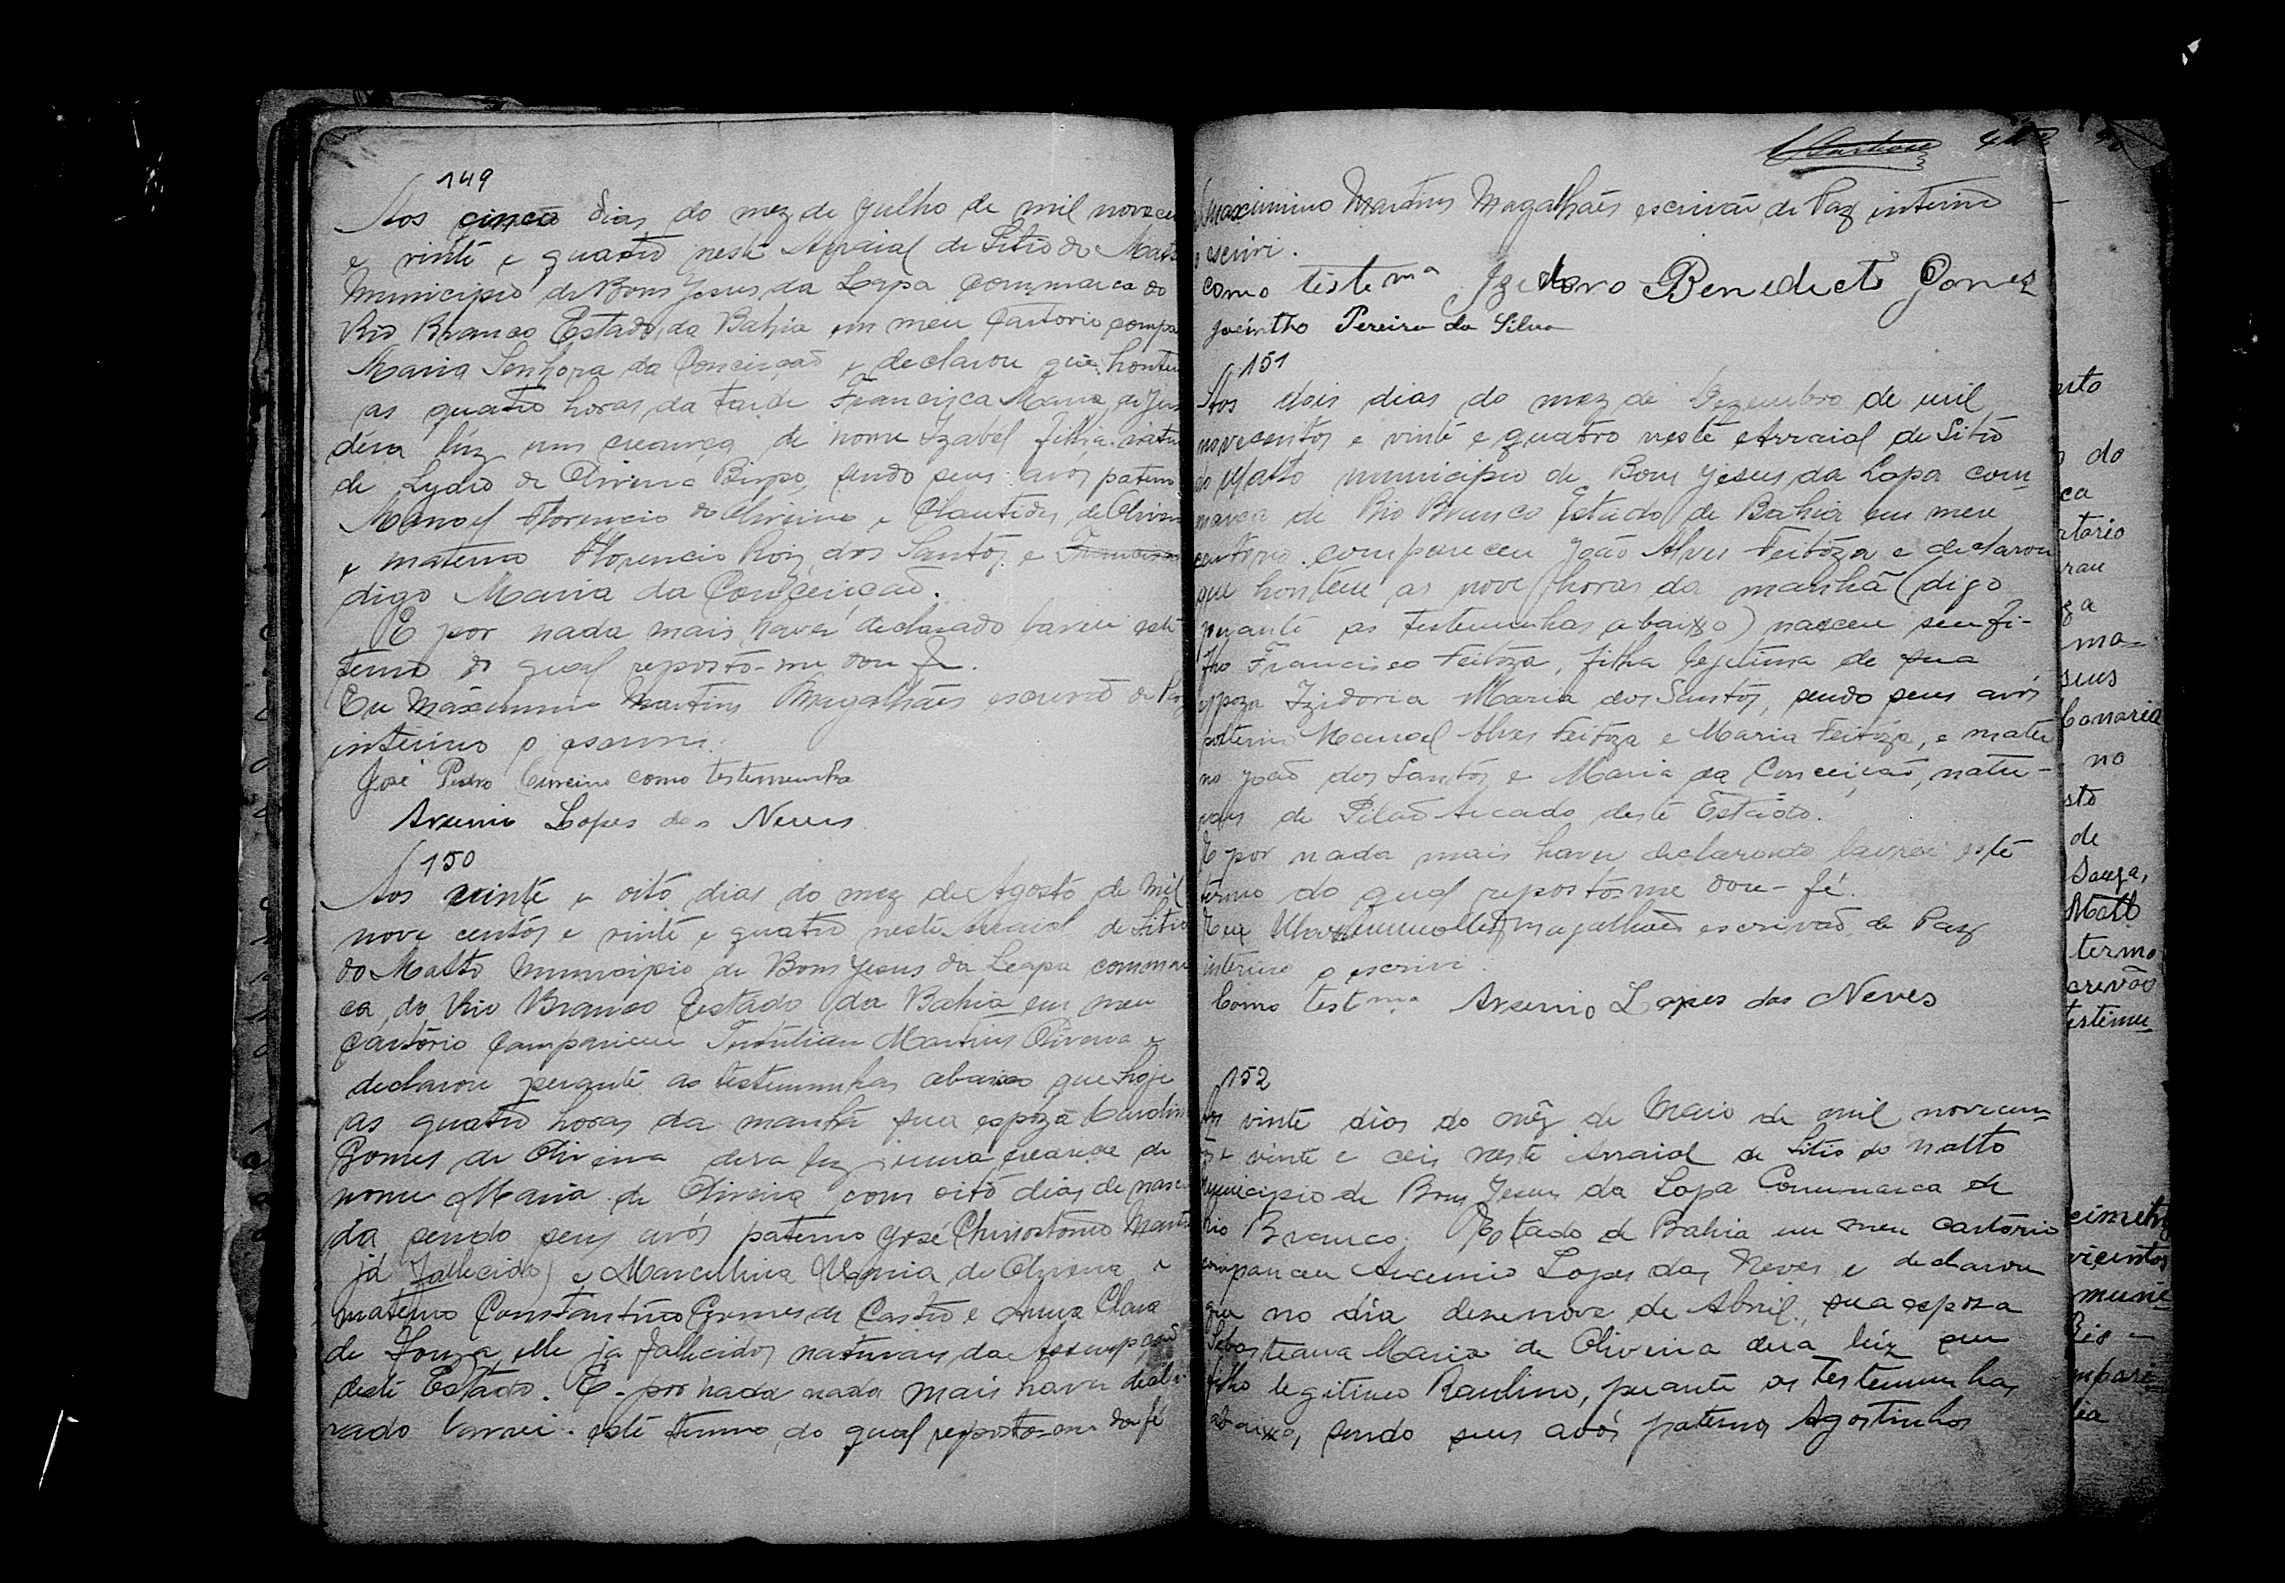 149
Aos cinco dias do mez de Julho de mil novece
e vinte e quatro neste Arraial de Sitio do Matto
Municipio de Bom Jesus da Lapa Commarca do
Rio Branco Estado da Bahia em meu Cartorio compa
Maria Senhora da Conceição e declarou que hontem
as quatro horas da tarde Francisca Maria de Jesus
déra lúz um creança de nome Izabel filha natu
de Lydio de Oliveira Bispo, sendo seus avós patern
Manoel Florencio de Oliveira e Clautides de Oliveira
e materno Florencio Roiz dos Santos e Francisca
digo Maria da Conceicão.
E por nada mais haver declarado lavrei este
termo do qual reposto-me dou fé.
Eu Maximino Martins Magalhães escrivão de Paz
interino o escrivi.
José Pedro como testemunha
Arsenio Lopes das Neves
150
Aos vinte e oito dias do mez de Agosto de Mil
nove centos e vinte e quatro neste Arraial de Sitio
do Matto Municipio de Bom Jesus da Lapa commar
ca do Rio Branco Estado da Bahia em meu
Cartorio Compareceu Martins Oliveira e
declarou perante as testemunhas abaixo que hoje
as quatro horas da manhã sua espoza Carolina
Gomes de Oliveira dera luz uma creança de
nome Maria de Oliveira com oito dias de nasci
da sendo seus avós paterno José Chrisostomo Martins
já fallecido e Marcellina Maria de Oliveira e
materno Constantino Gomes de Castro e Anna Clara
de Souza elle ja fallecidos naturais da Assumpção
deste Estado. E por nada nada mais haver decla
rado lavrei este termo do qual reposto-me dou fé
Maximino Martins Magalhães escrivão de Paz interino
o escrivi.
como testema Izidoro Benedicto Gomes
Jacintho Pereira da Silva
151
Aos dois dias do mez de Dezembro de mil
novecentos e vinte e quatro neste Arraial de Sitio
do Matto municipio de Bom Jesus da Lapa com-
marca de Rio Branco Estado de Bahia em meu
cartorio compareceu João Alves Feitóza e declarou
que hontem as nove horas da manhã (digo
perante as testemunhas abaixo) nasceu seu fi-
lho Francisco Feitóza, filha legitima de sua
espoza Izidoria Maria dos Santos, sendo seus avós
paterno Manoel Alves Feitóza e Maria Feitóza, e mater
no João dos Santos e Maria da Conceição, natu-
rais de Pilão Arcado deste Estado.
E por nada mais haver declarando lavrei este
termo do qual reposto-me dou-fé.
Eu Maximino Mtz Magalhães escrivão de Paz
interino o escrivi.
Como testma Arsenio Lopes das Neves
152
Aos vinte dias do mêz de Maio de mil novecen-
tos e vinte e ceis neste Arraial de Sitio do Matto
Municipio de Bom Jesus da Lapa Commarca de
Rio Branco. Estado de Bahia em meu cartório
compareceu Arcenio Lopes das Neves e declarou
que no dia desenove de Abril, sua espoza
Sebasteana Maria de Oliveira dera lúz um
filho legitimo Raulino, perante as testemunhas
abaixo, sendo seus avós paternos Agostinhos